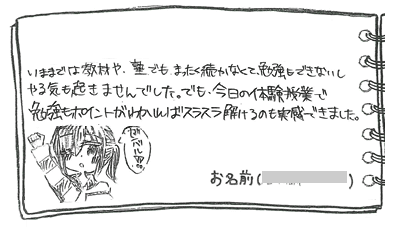 いままでは教材や、塾でも、まったく続かなくて、勉強もできないし
やる気も起きませんでした。でも、今日の体験授業で
勉強もポイントがわかればスラスラ解けるのも実感できました。
お名前( )